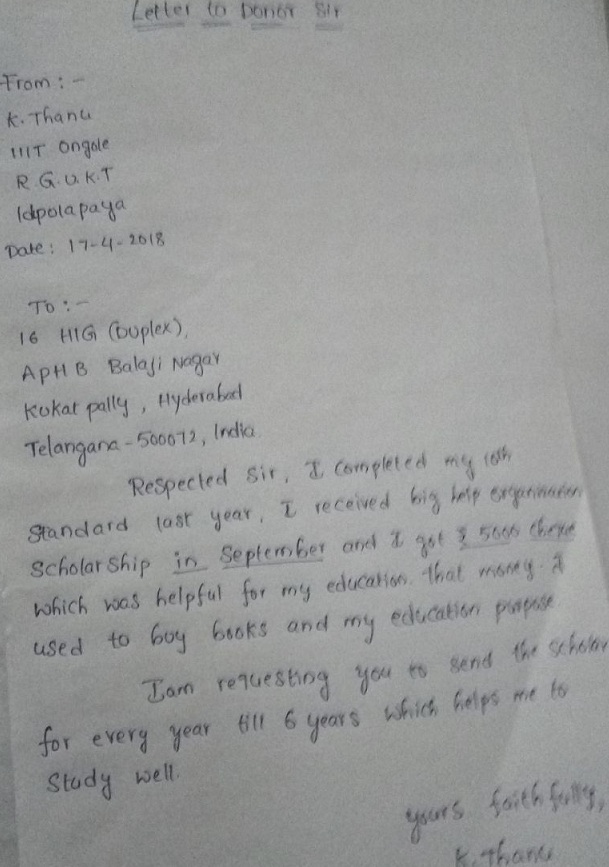 Letter to Donor Sir
From :-
K. Thanu
IIIT Ongole
R.G.U.K.T
Idpolapaya
Date: 17-4-2018
To :-
16 HIG (Duplex),
APHB Balaji Nagar
Kukat pally, Hyderabad
Telangana - 500072, India.
Respected Sir, I completed my 10th
Standard last year, I received big help organisation
Scholarship in September and I got 5000 cheque
which was helpful for my education. That money I
used to buy books and my education purpose.
Iam requesting you to send the scholar
for every year till 6 years which helps me to
Study well.
yours faithfully,
K. Thanu